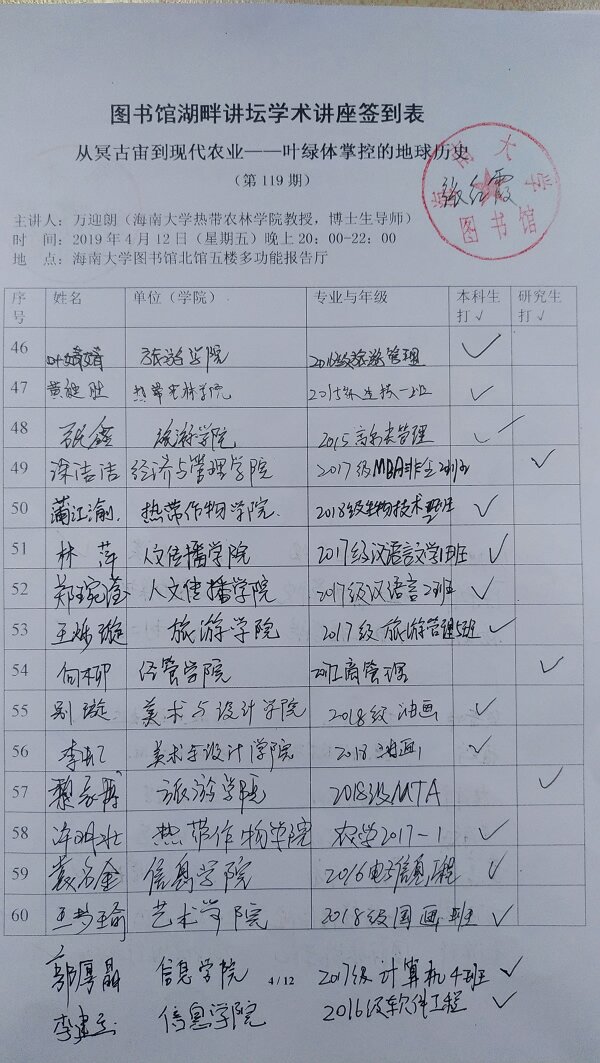 图书馆湖畔讲坛学术讲座签到表
从冥古宙到现代农业——叶绿体掌控的地球历史
（第 119 期）
海南大学
图书馆
张红霞
主讲人：万迎朗（海南大学热带农林学院教授，博士生导师）
时 间：2019 年 4 月 12 日（星期五）晚上 20：00-22：00
地 点：海南大学图书馆北馆五楼多功能报告厅
序号 姓名 单位（学院） 专业与年级 本科生打√ 研究生打√
46 叶婧婧 旅游学院 2016级旅游管理 √
47 热带农林学院 2015级 一班 √
48 张鑫 旅游学院 2015 管理 √
49 涂洁洁 经济与管理学院 2017级MBA非全2班 √
50 蒲江渝 热带作物学院 2018级生物技术 班 √
51 林萍 人文传播学院 2017级汉语言文学1班 √
52 郑琬莹 人文传播学院 2017级汉语言2班 √
53 王烁璇 旅游学院 2017级旅游管理5班 √
54 向柳 经管学院 工商管理 √
55 别璇 美术与设计学院 2018级油画 √
56 李 美术与设计学院 2018油画1 √
57 黎 旅游学院 2018级MTA √
58 许明壮 热带作物学院 农学2017-1 √
59 袁名金 信息学院 2016电子信息工程 √
60 王梦瑜 艺术学院 2018级国画 班 √
郭厚晶 信息学院 2017级计算机4班 √
4 / 12
李建 信息学院 2016级软件工程 √